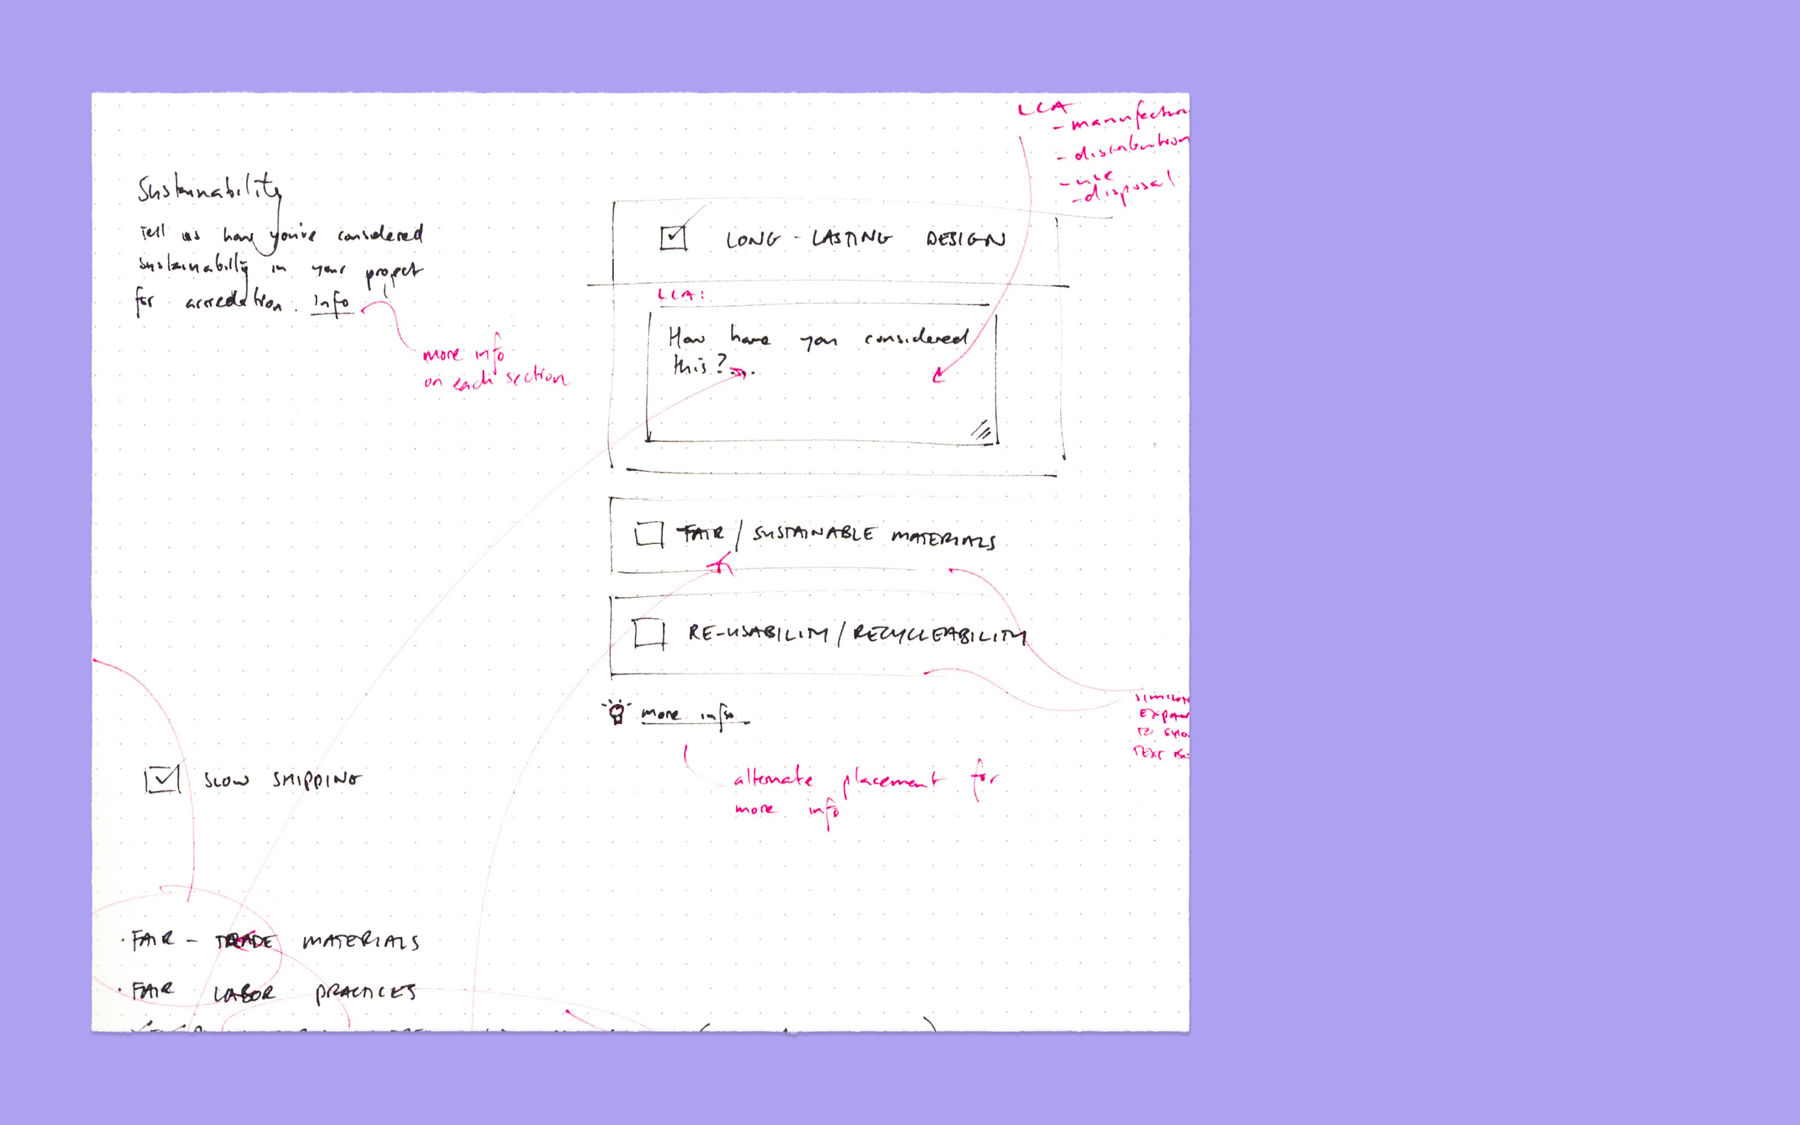 Sustainability
Tell us how you've considered
sustainability in your project
for accredation. info
more info
on each section
LCA
- manufactur
- distribution
- use
- disposal
LONG-LASTING DESIGN
LCA:
How have you considered
this?...
FAIR / SUSTAINABLE MATERIALS
RE-USABILITY / RECYCLEABILITY
more info
alternate placement for
more info
EXPAN
TO
TEXT
SLOW SHIPPING
· FAIR - TRADE MATERIALS
· FAIR LABOR PRACTICES